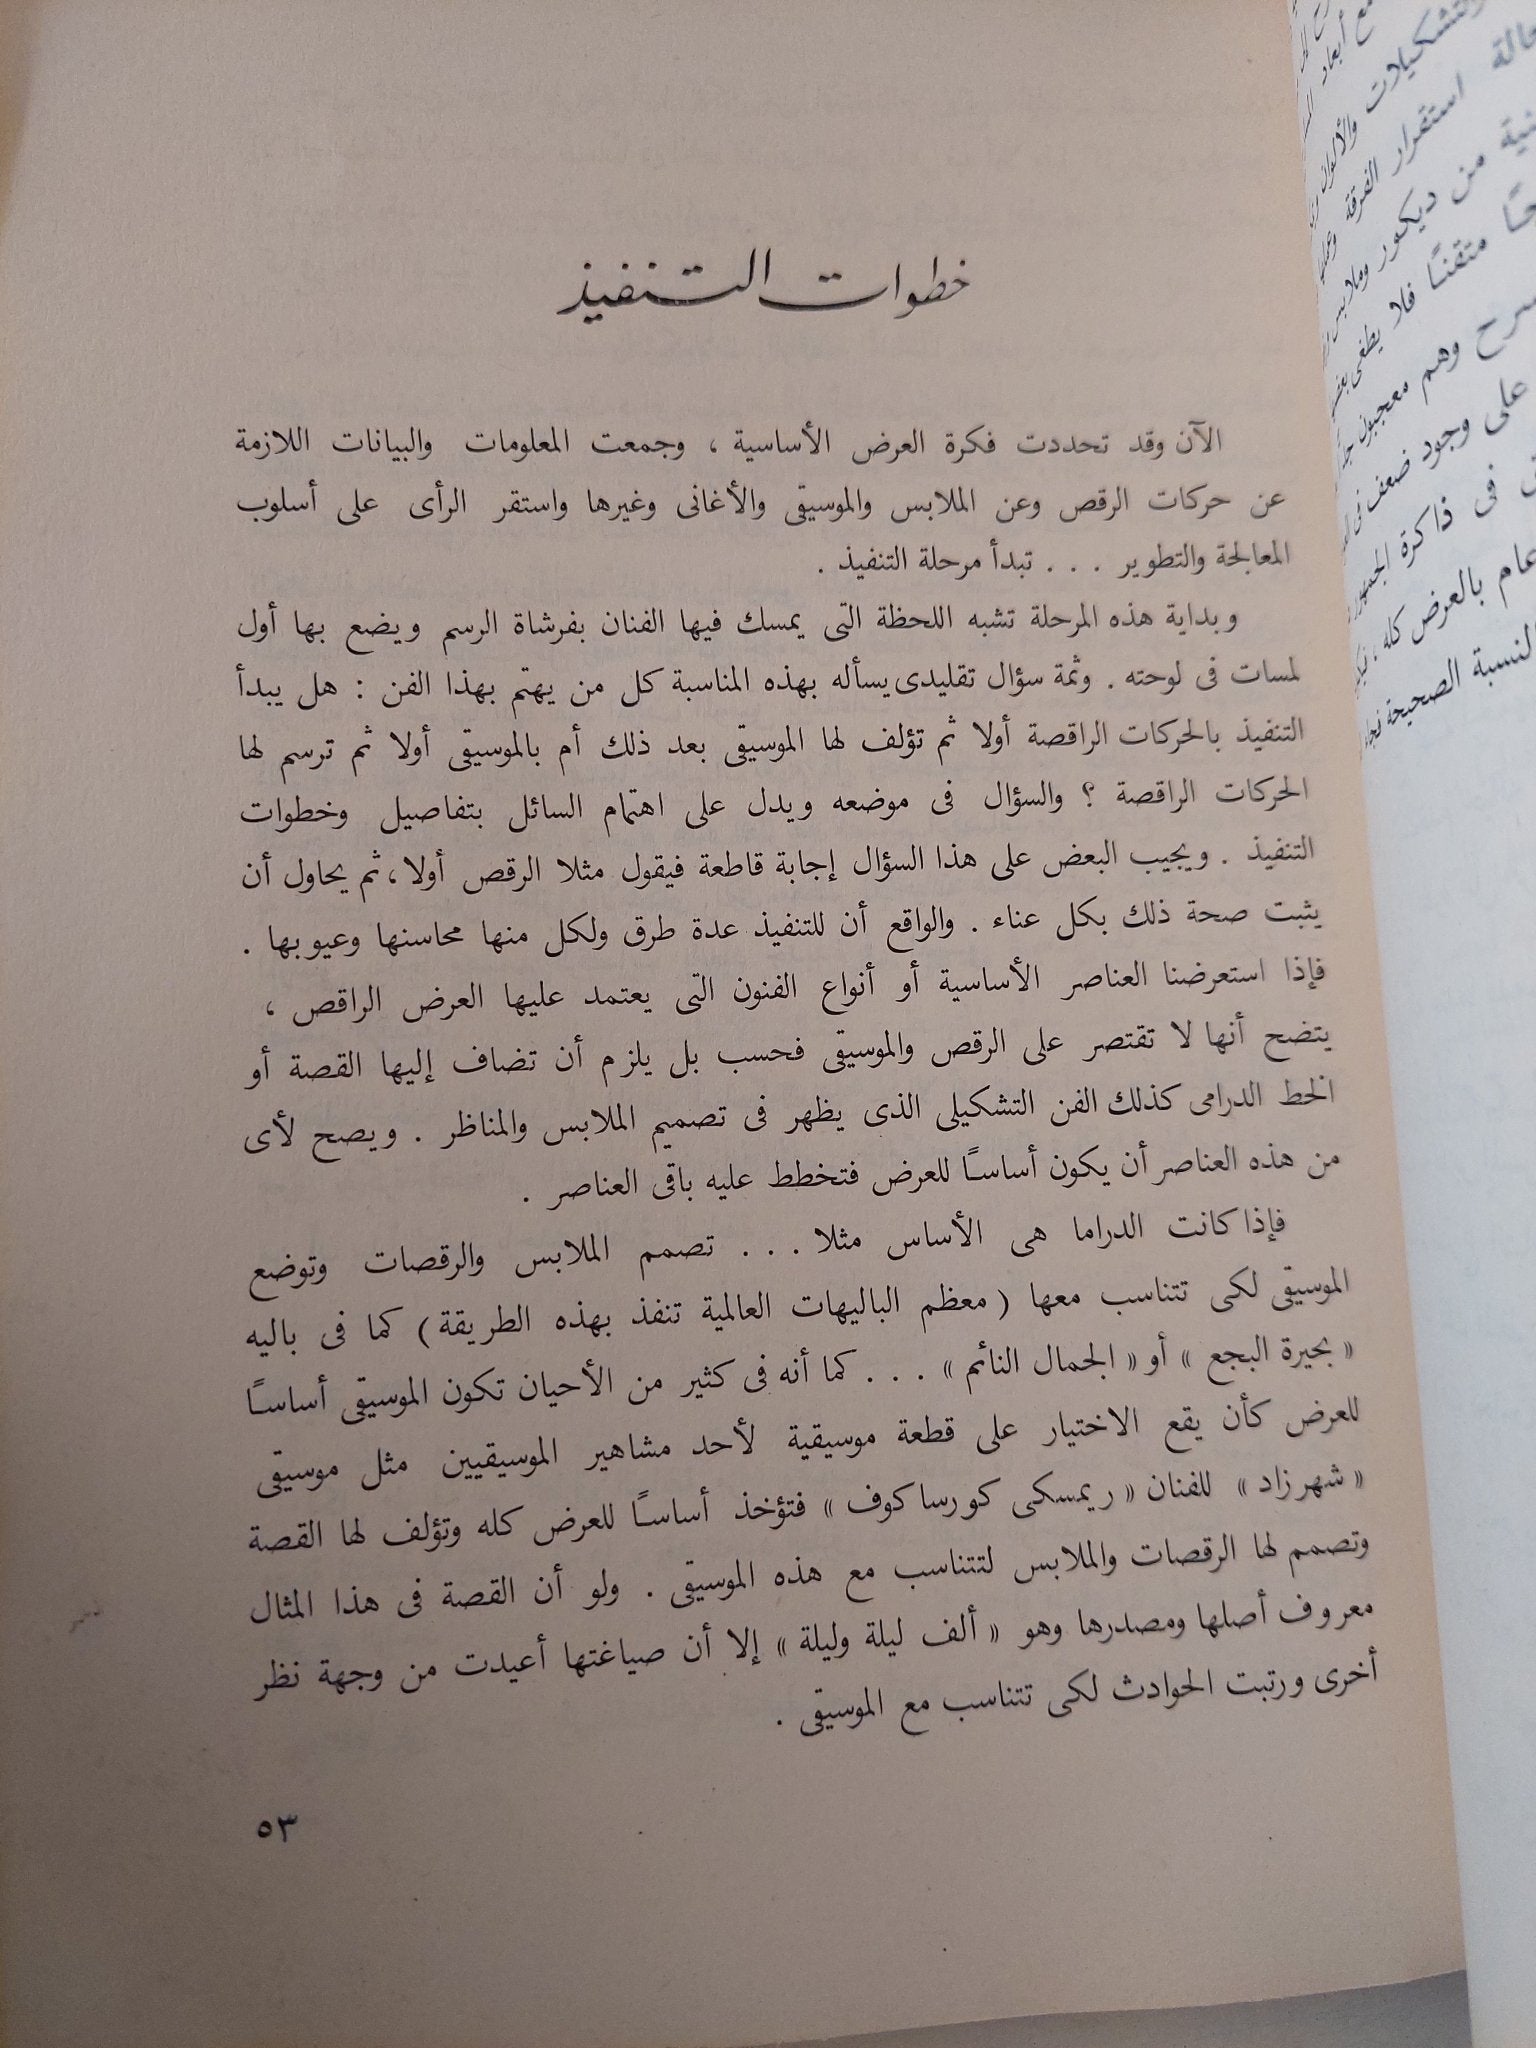 خطوات التنفيذ
الآن وقد تحددت فكرة العرض الأساسية ، وجمعت المعلومات والبيانات اللازمة
عن حركات الرقص وعن الملابس والموسيقى والأغانى وغيرها واستقر الرأى على أسلوب
المعالجة والتطوير . . . تبدأ مرحلة التنفيذ .
وبداية هذه المرحلة تشبه اللحظة التى يمسك فيها الفنان بفرشاة الرسم ويضع بها أول
لمسات فى لوحته . وثمة سؤال تقليدى يسأله بهذه المناسبة كل من يهتم بهذا الفن : هل يبدأ
التنفيذ بالحركات الراقصة أولا ثم تؤلف لها الموسيقى بعد ذلك أم بالموسيقى أولا ثم ترسم لها
الحركات الراقصة ؟ والسؤال فى موضعه ويدل على اهتمام السائل بتفاصيل وخطوات
التنفيذ . ويجيب البعض على هذا السؤال إجابة قاطعة فيقول مثلا الرقص أولا ، ثم يحاول أن
يثبت صحة ذلك بكل عناء . والواقع أن للتنفيذ عدة طرق ولكل منها محاسنها وعيوبها .
فإذا استعرضنا العناصر الأساسية أو أنواع الفنون التى يعتمد عليها العرض الراقص ،
يتضح أنها لا تقتصر على الرقص والموسيقى فحسب بل يلزم أن تضاف إليها القصة أو
الخط الدرامى كذلك الفن التشكيلى الذى يظهر فى تصميم الملابس والمناظر . ويصح لأى
من هذه العناصر أن يكون أساسًا للعرض فتخطط عليه باقى العناصر .
فإذا كانت الدراما هى الأساس مثلا . . . تصمم الملابس والرقصات وتوضع
الموسيقى لكى تتناسب معها ( معظم الباليهات العالمية تنفذ بهذه الطريقة ) كما فى باليه
« بحيرة البجع » أو « الجمال النائم » . . . كما أنه فى كثير من الأحيان تكون الموسيقى أساسًا
للعرض كأن يقع الاختيار على قطعة موسيقية لأحد مشاهير الموسيقيين مثل موسيقى
« شهرزاد » للفنان « ريمسكى كورساكوف » فتؤخذ أساسًا للعرض كله وتؤلف لها القصة
وتصمم لها الرقصات والملابس لتتناسب مع هذه الموسيقى . ولو أن القصة فى هذا المثال
معروف أصلها ومصدرها وهو « ألف ليلة وليلة » إلا أن صياغتها أعيدت من وجهة نظر
أخرى ورتبت الحوادث لكى تتناسب مع الموسيقى .
٥٣
والتشكيلات والألوان
حالة استقرار الفرقة
من ديكور وملابس
متقنًا فلا يطغى
وهم معجبون
على وجود ضعف فى
فى ذاكرة الجمهور
عام بالعرض كله .
النسبة الصحيحة